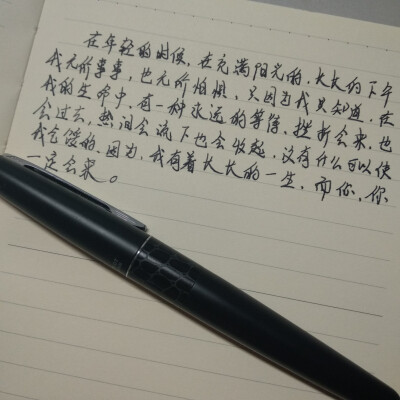 在年轻的时候，在充满阳光的，长长的下午
我无所事事，也无所怕惧，只因为我只知道，在
我的生命中，有一种永远的等待。挫折会来，也
会过去，热泪会流下也会收起，没有什么可以使
我气馁的，因为，我有着长长的一生，而你，你
一定会来。